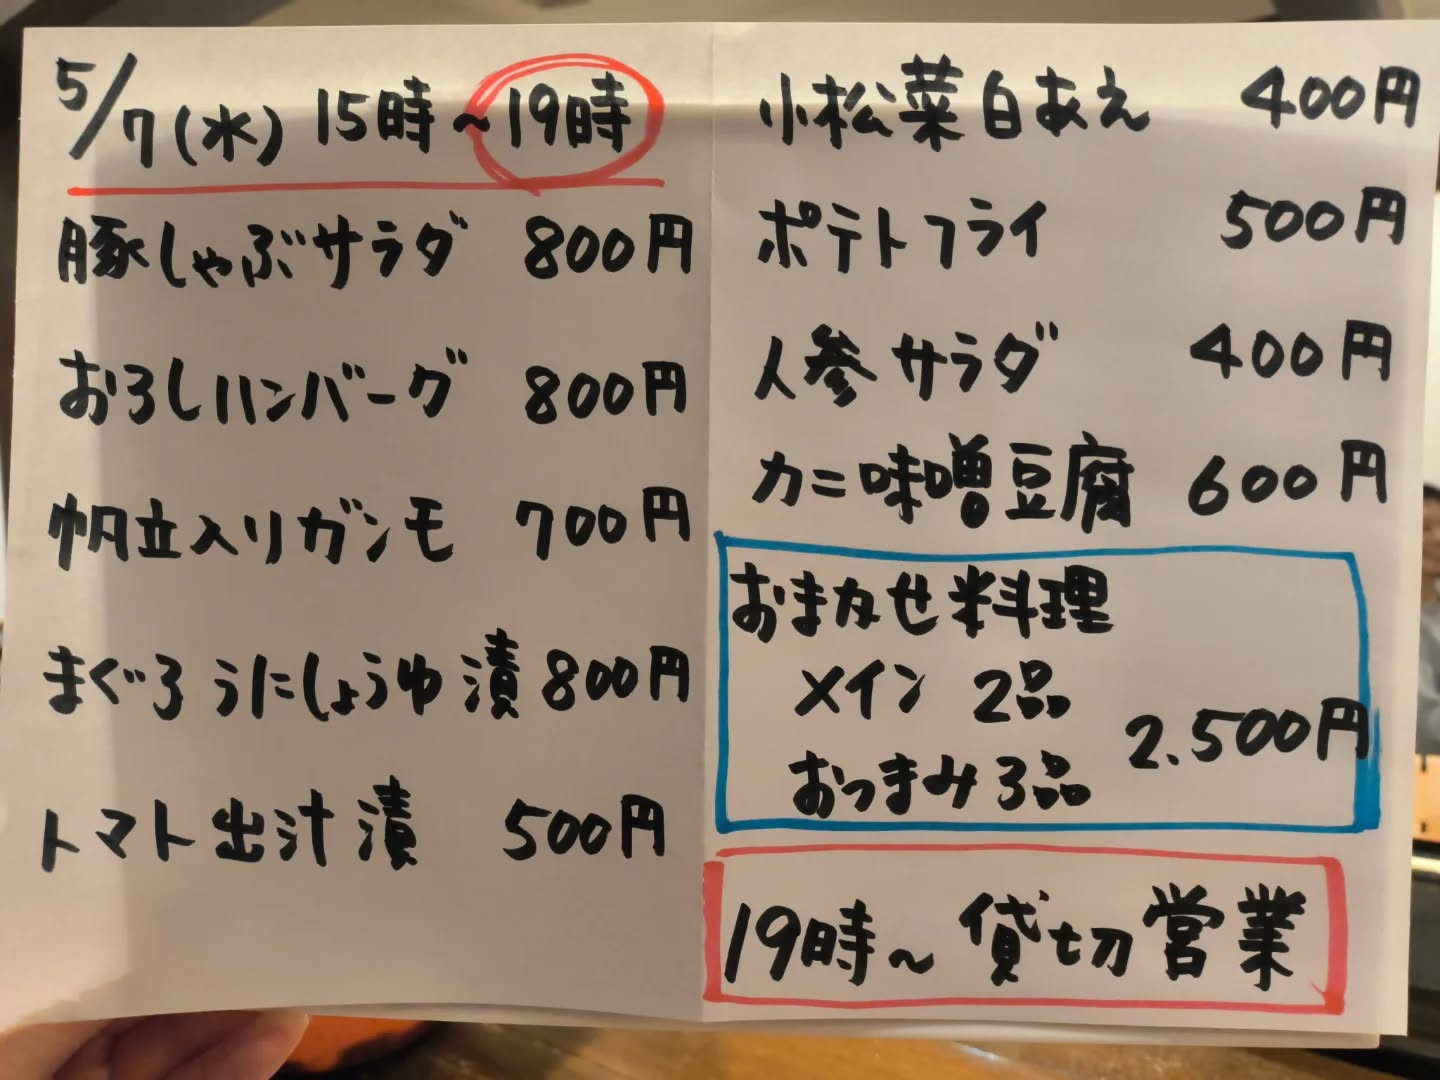 5/7(水) 15時~19時
豚しゃぶサラダ 800円
おろしハンバーグ 800円
帆立入りガンモ 700円
まぐろうにしょうゆ漬 800円
トマト出汁漬 500円
小松菜白あえ 400円
ポテトフライ 500円
人参サラダ 400円
カニ味噌豆腐 600円
おまかせ料理
メイン 2品
おつまみ3品 2.500円
19時~貸切営業